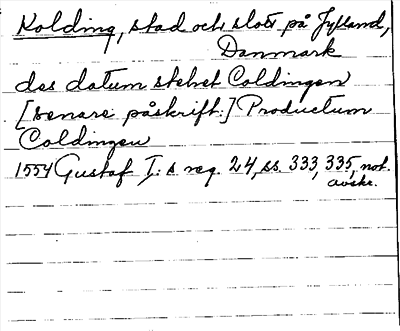 Kolding, stad och slott på Jylland,
Danmark
des datum stehet Coldingen
[senare påskrift:] Productum
Coldingen
1554 Gustaf I:s reg. 24, ss. 333, 335, not.
avskr.